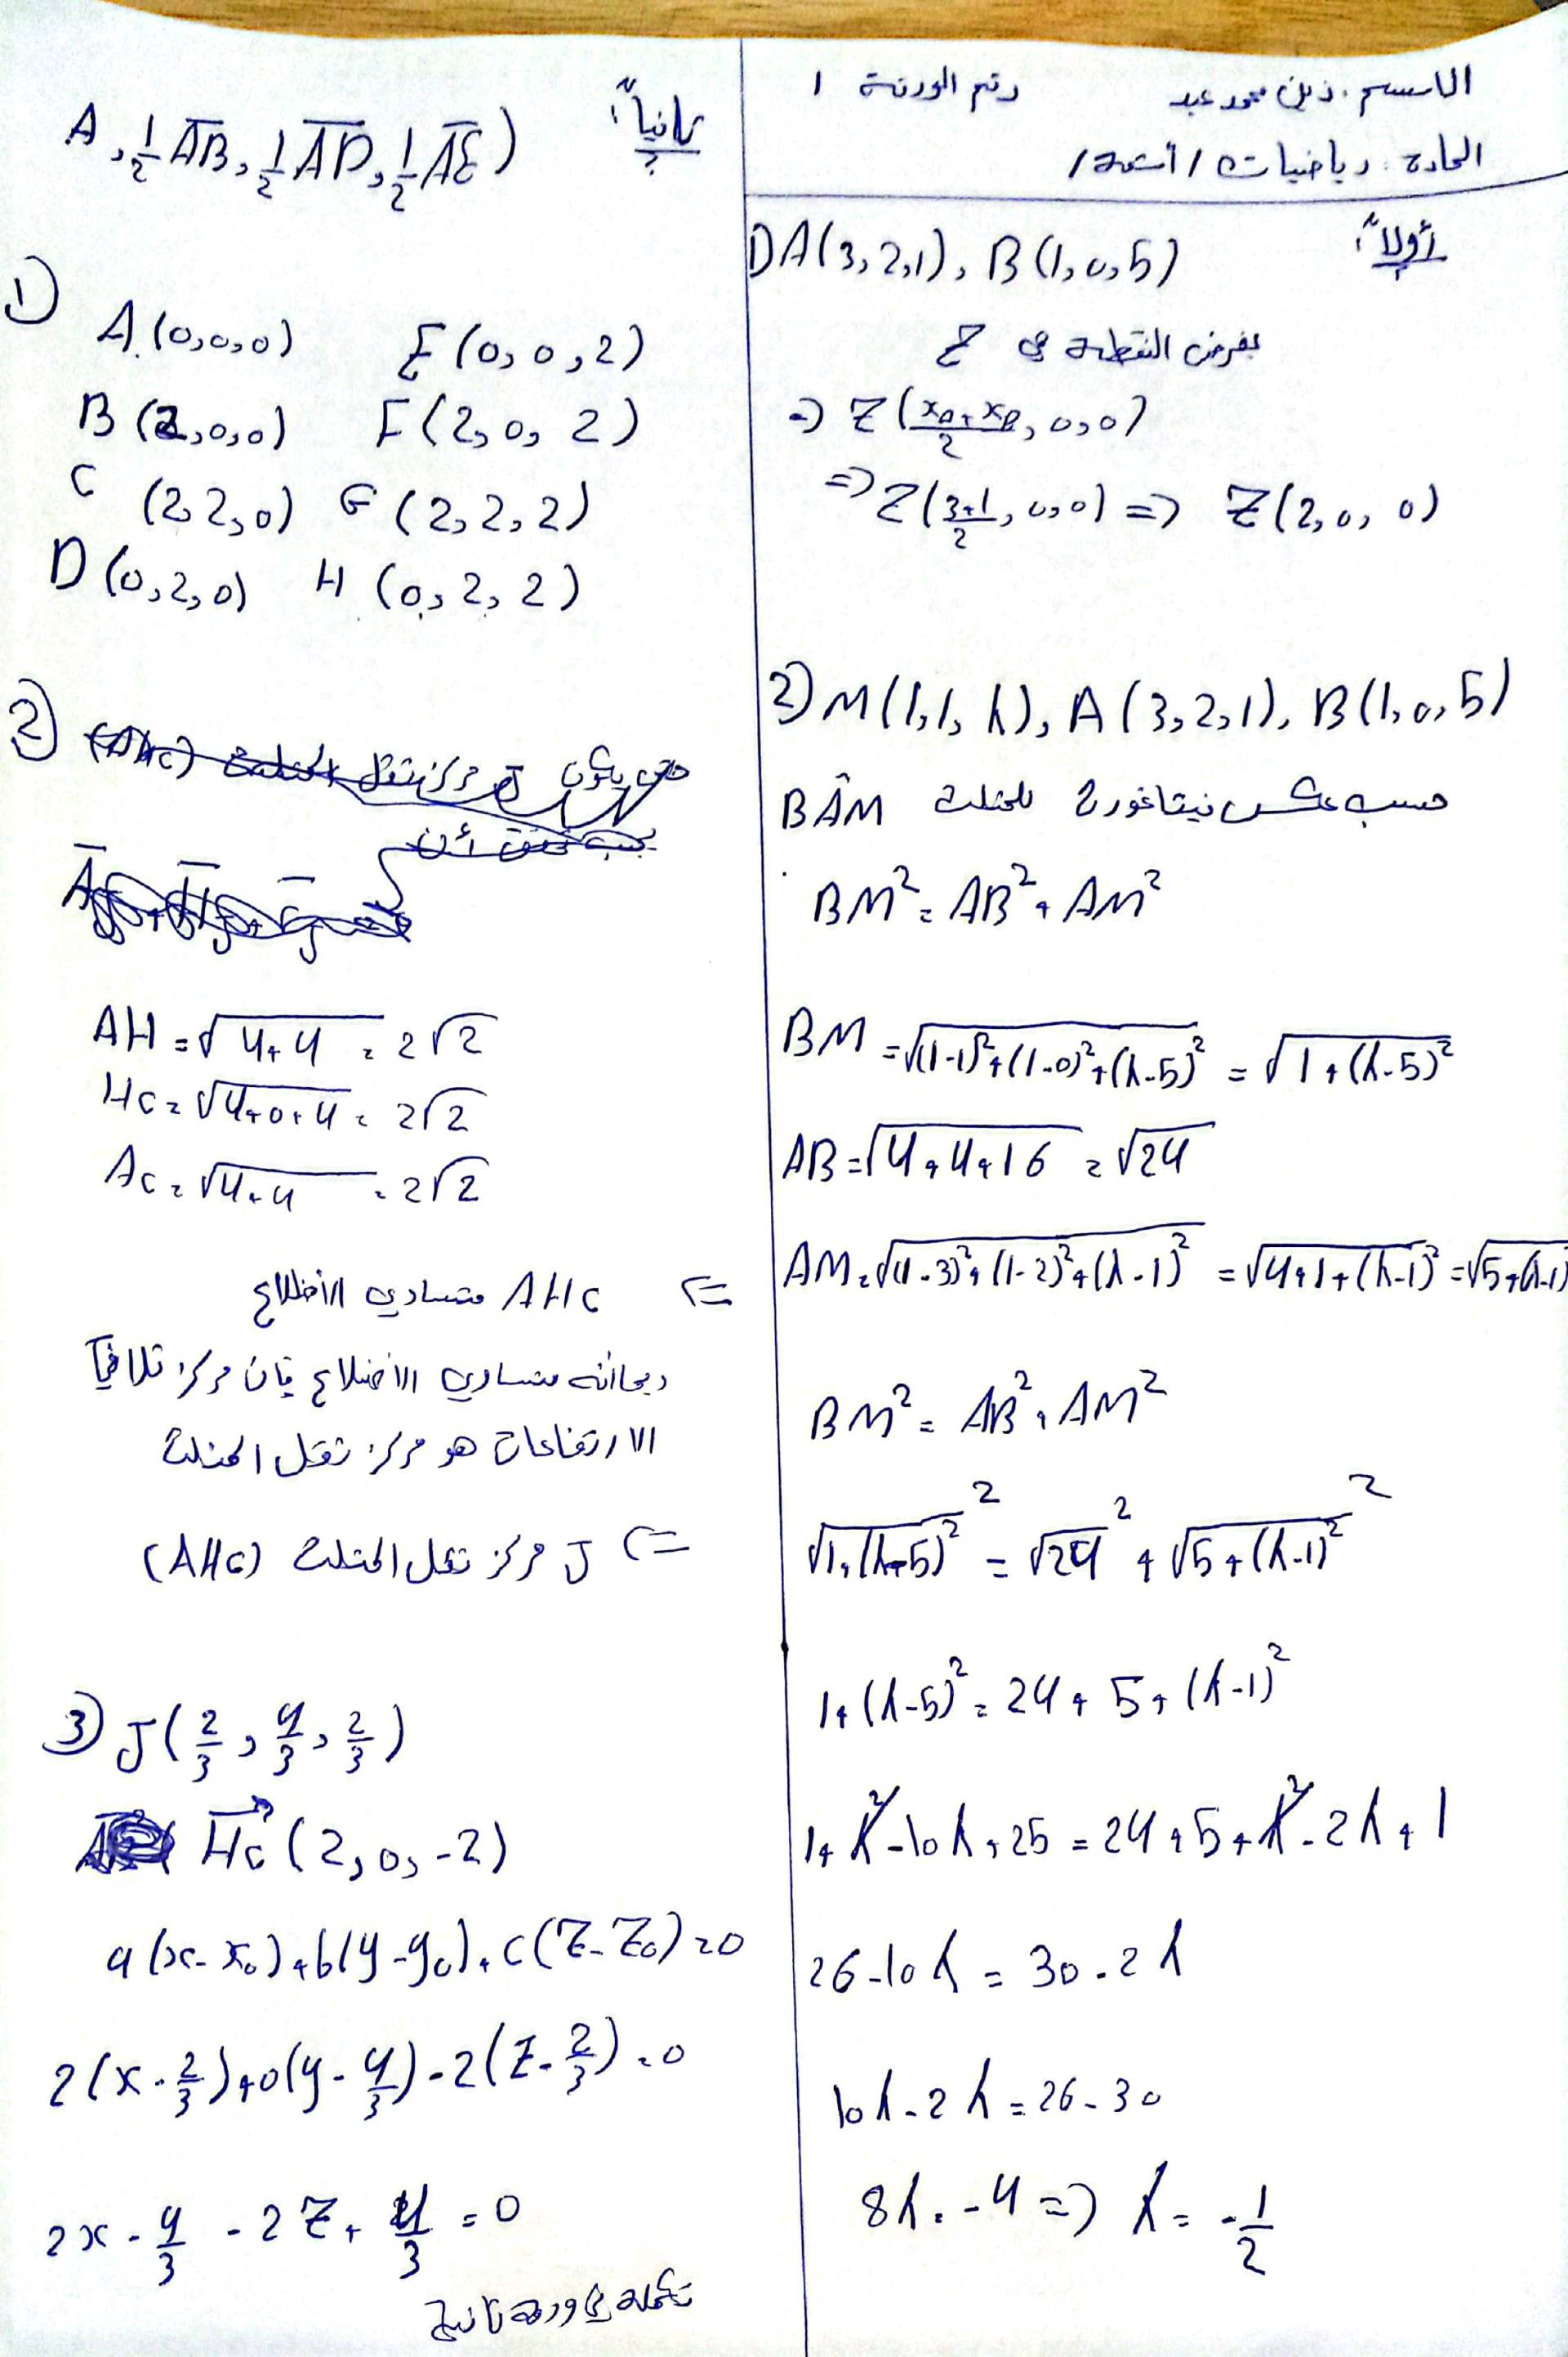 الاسم: زين محمد عبد رقم الورقة 1
المادة: رياضيات / أشعة /
أولاً:
1) A(3,2,1), B(1,0,5)
بفرض النقطة هي Z
=> Z((x_A+x_B)/2, 0, 0)
=> Z((3+1)/2, 0, 0) => Z(2, 0, 0)
2) M(1,1,λ), A(3,2,1), B(1,0,5)
حسب عكس فيتاغورث للمثلث BÂM
BM² = AB² + AM²
BM = √((1-1)²+(1-0)²+(λ-5)²) = √(1+(λ-5)²)
AB = √(4+4+16) = √24
AM = √((1-3)²+(1-2)²+(λ-1)²) = √(4+1+(λ-1)²) = √(5+(λ-1)
BM² = AB² + AM²
√(1+(λ-5)²)² = √24² + √(5+(λ-1)²)²
1+(λ-5)² = 24+5+(λ-1)²
1+λ²-10λ+25 = 24+5+λ²-2λ+1
26-10λ = 30-2λ
10λ-2λ = 26-30
8λ = -4 => λ = -1/2
ثانياً:
A, 1/2 AB, 1/2 AD, 1/2 AE)
1)
A(0,0,0) E(0,0,2)
B(2,0,0) F(2,0,2)
C(2,2,0) G(2,2,2)
D(0,2,0) H(0,2,2)
2)
حتى يكون J مركز ثقل المثلث (AHC)
يجب تحقق أن
AH = √(4+4) = 2√2
HC = √(4+0+4) = 2√2
AC = √(4+4) = 2√2
<= AHC متساوي الأضلاع
وبما أنه متساوي الاضلاع فإن مركز تلاقي
الارتفاعات هو مركز ثقل المثلث
<= J مركز ثقل المثلث (AHC)
3) J(2/3, 4/3, 2/3)
HC(2,0,-2)
a(x-x₀)+b(y-y₀)+c(z-z₀)=0
2(x-2/3)+0(y-4/3)-2(z-2/3)=0
2x - 4/3 - 2z + 4/3 = 0
تكملة في ورقة تانية